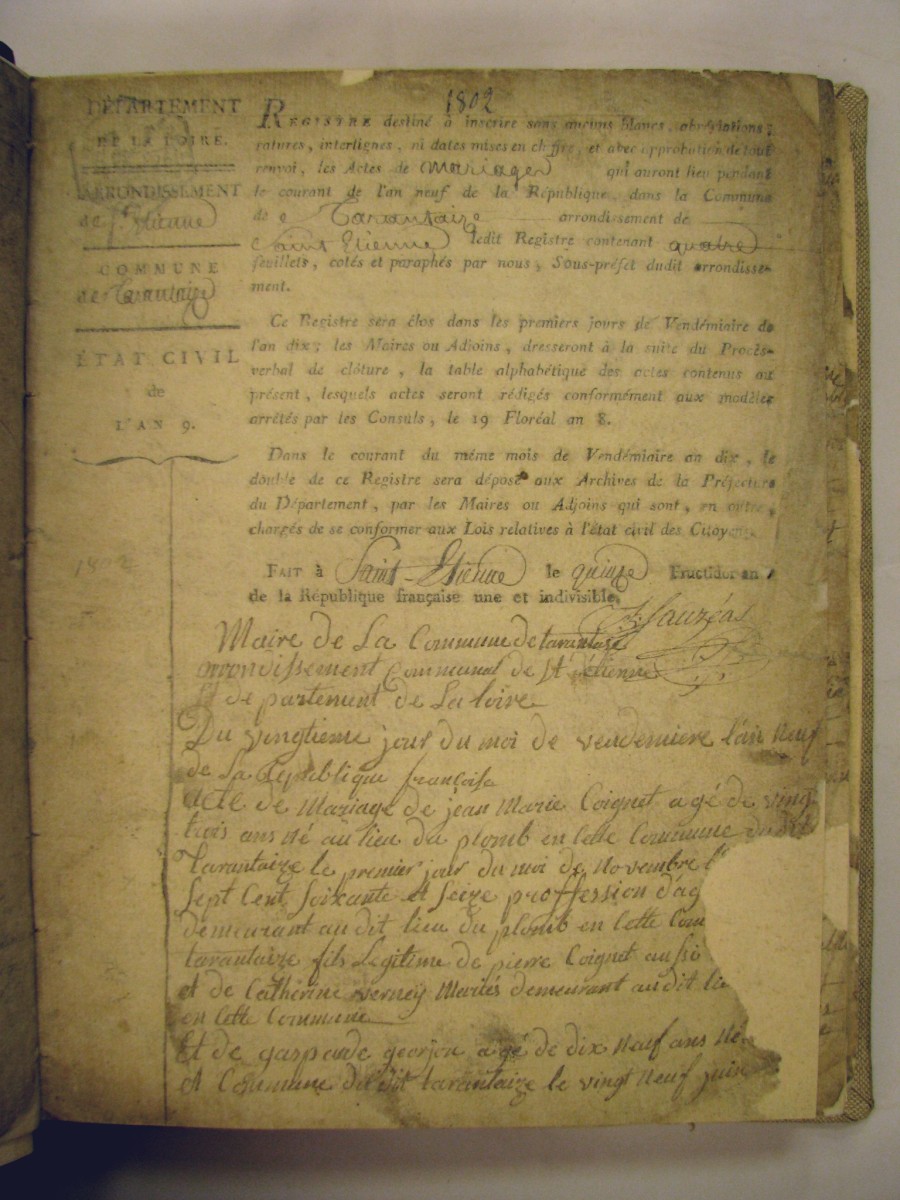 1802
DÉPARTEMENT
DE LA LOIRE.
ARRONDISSEMENT
de St. Etienne
COMMUNE
de Tarantaize
ÉTAT CIVIL
de
L'AN 9.
1802
REGISTRE destiné à inscrire sans aucuns blancs, abréviations,
ratures, interlignes, ni dates mises en chiffre, et avec approbation de tout
renvoi, les Actes de Mariages qui auront lieu pendant
le courant de l'an neuf de la République, dans la Commune
de Tarantaize arrondissement de
Saint Etienne ledit Registre contenant quatre
feuillets, cotés et paraphés par nous, Sous-préfet dudit arrondisse-
ment.
Ce Registre sera clos dans les premiers jours de Vendémiaire de
l'an dix; les Maires ou Adjoins, dresseront à la suite du Procès-
verbal de clôture, la table alphabétique des actes contenus au
présent, lesquels actes seront rédigés conformément aux modèles
arrêtés par les Consuls, le 19 Floréal an 8.
Dans le courant du même mois de Vendémiaire an dix, le
double de ce Registre sera déposé aux Archives de la Préfecture
du Département, par les Maires ou Adjoins qui sont, en outre,
chargés de se conformer aux Lois relatives à l'état civil des Citoyens.
FAIT à Saint-Etienne le quinze Fructidor an
de la République française une et indivisible.
Sauzéas
Maire de La Commune de tarantaize
arrondissement Communal de St étienne
departement de La loire
Du vingtieme jour du moi de vendemiere l'an neuf
de La republique françoise
acte de Mariage de jean Marie Coignet agé de ving
trois ans né au lieu du plomb en cette Commune du dit
tarantaize le premier jour du moi de novembre
Sept Cent Soixante et Seize proffession d'ag
demeurant au dit lieu du plomb en cette Com
tarantaize fils Legitime de pierre Coignet aussi
et de Catherine verney Mariés demeurant au dit lie
en cette Commune
Et de gasparde georjon agé de dix neuf ans né
et Commune du dit tarantaize le vingt neuf juin